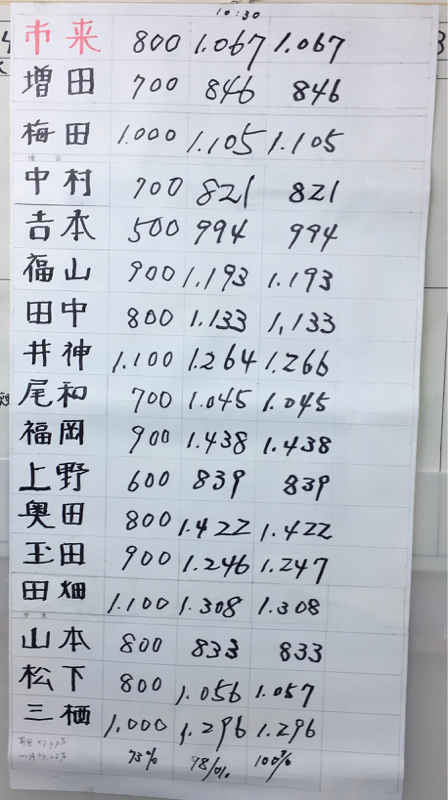 10:30
市来 800 1.067 1.067
増田 700 846 846
梅田 1.000 1.105 1.105
中村 700 821 821
吉本 500 994 994
福山 900 1.193 1.193
田中 800 1.133 1.133
井神 1.100 1.264 1.266
尾和 700 1.045 1.045
福岡 900 1.438 1.438
上野 600 839 839
奥田 800 1.422 1.422
玉田 900 1.246 1.247
田畑 1.100 1.308 1.308
山本 800 833 833
松下 800 1.056 1.057
三栖 1.000 1.296 1.296
75% 98% 100%